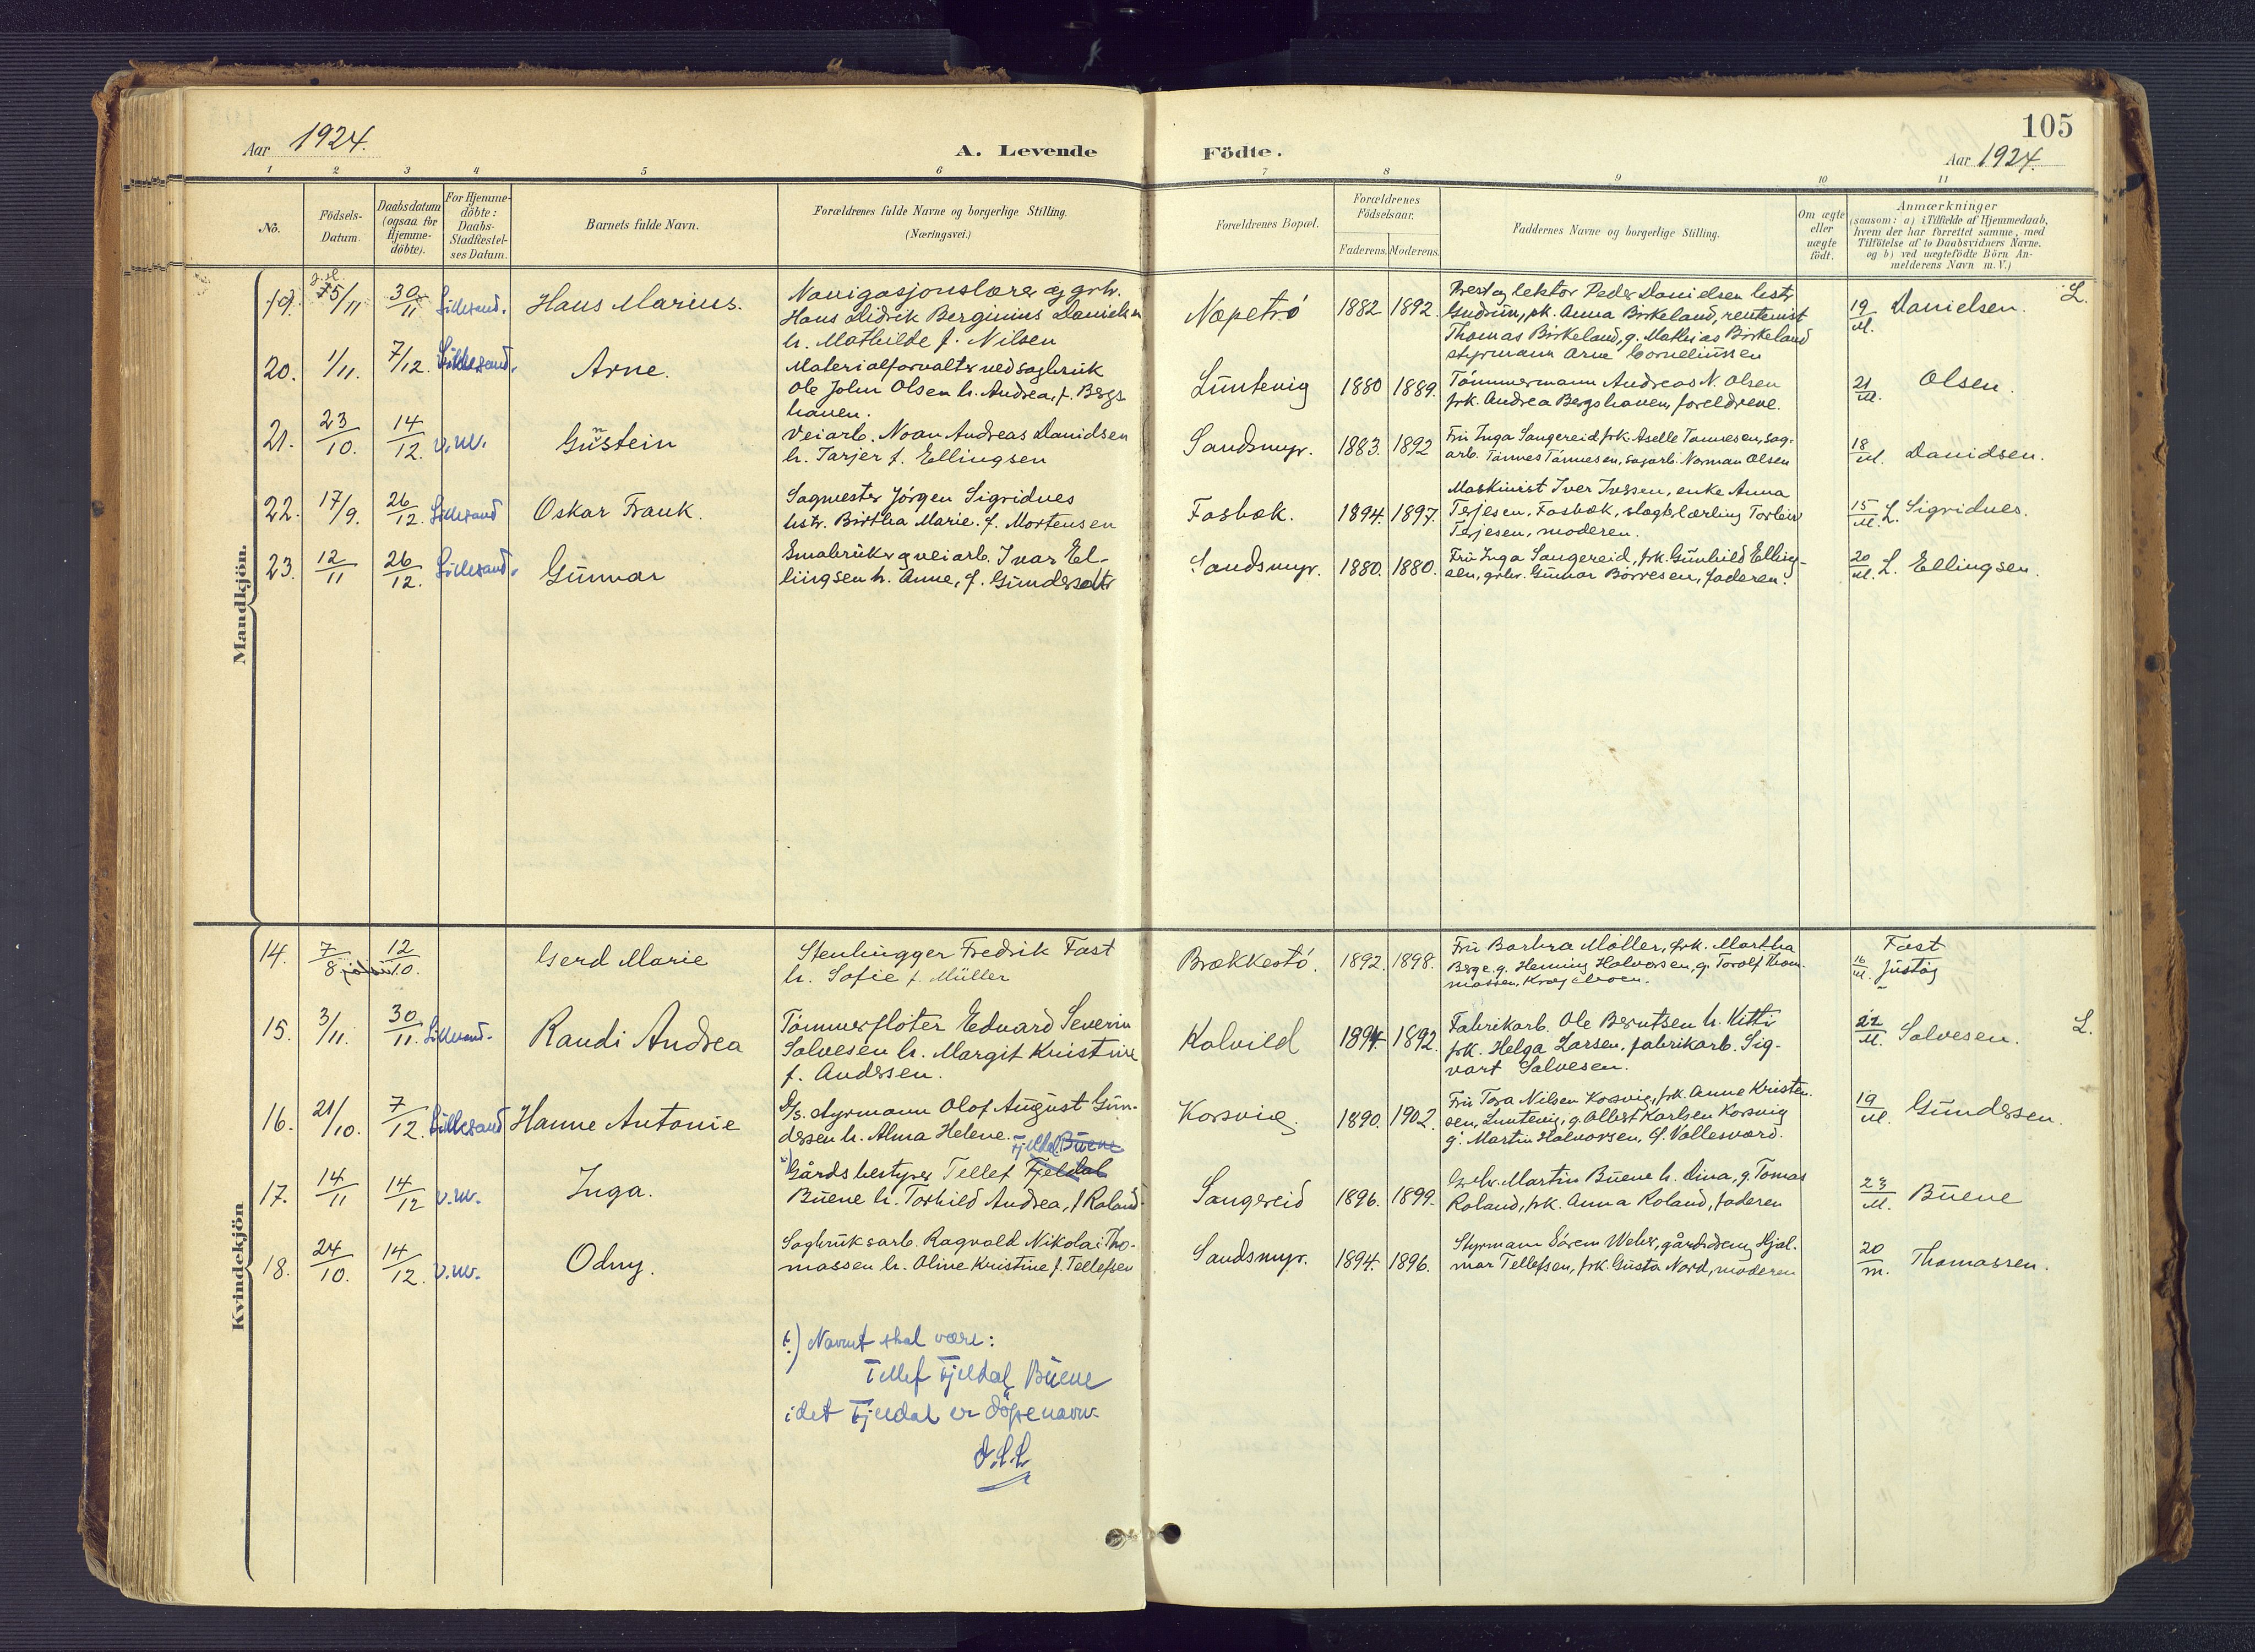 105
Aar 1924.
A. Levende Födte.
Aar 1924.
1 2 3 4 5 6 7 8 9 10 11
No.
Födsels-
Datum.
Daabsdatum
(ogsaa for
Hjemme-
döbte).
For Hjemme-
döbte:
Daabs-
Stadfæstel-
ses Datum.
Barnets fulde Navn.
Forældrenes fulde Navne og borgerlige Stilling.
(Næringsvei.)
Forældrenes Bopæl.
Forældrenes
Födselsaar.
Faderens. Moderens.
Faddernes Navne og borgerlige Stilling.
Om ægte
eller
uægte
födt.
Anmærkninger
(saasom: a) i Tilfælde af Hjemmedaab,
hvem der har forrettet samme, med
Tilföielse af to Daabsvidners Navne,
og b) ved uægtefödte Börn An-
melderens Navn m. V.)
Mandkjön.
19. 5/11 30/11 Lillesand. Hans Marius.
Navigasjonslærer og grbr.
Hans Didrik Berginius Danielsen
h. Mathilde f. Nilsen
Næpetrö 1882 1892.
Prest og lektor Peder Danielsen hstr.
Gudrun, frk. Anna Birkeland, rentenist
Thomas Birkeland, g. Mathias Birkeland
styrmann Arne Corneliussen
19/M. Danielsen. L.
20. 1/11. 7/12. Lillesand. Arne.
Materialforvalter ved sagbruk
Ole John Olsen h. Andrea, f. Bergs
haven.
Luntevig 1880 1889.
Tömmermann Andreas N. Olsen
frk. Andrea Bergshaven, foreldrene.
21/M. Olsen.
21. 23/10. 14/12. v.m. Gunstein
Veiarb. Noan Andreas Davidsen
h. Tarjer f. Ellingsen
Sandsmyr. 1883. 1892
Fru Inga Sangereid frk. Aselle Tønnesen, sag-
arb. Tønnes Tønnesen, sagarb. Norman Olsen
18/M. Davidsen.
22. 17/9. 26/12. Lillesand Oskar Frank.
Sagmester Jörgen Sigridnes
hstr. Birtha Marie. f. Mortensen
Fosbæk. 1894. 1897.
Maskinist Iver Iversen, enke Anna
Terjesen, Fosbæk, slagterlærling Torleiv
Terjesen, moderen.
15/M. L. Sigridnes.
23. 12/11 26/12. Lillesand. Gunnar
Smabruker g veiarb. Ivar El-
lingsen h. Anne, f. Gundersen
Sandsmyr. 1880. 1880.
Fru Inga Sangereid, frk. Gunhild Elling-
sen, grbr. Gunnar Börresen, faderen.
20/M. L. Ellingsen.
Kvindekjön
14. 7/8 12/10. Gerd Marie
Stenhugger Fredrik Fast
h. Sofie f. Müller
Brækkestö. 1892. 1898.
Fru Barbra Möller, frk. Martha
Berge. g. Heming Halvorsen, g. Torolf Thom-
massen,
Fast
16/M. Justöy
15. 3/11. 30/11. Lillesand. Randi Andrea
Tömmerflöter Edvard Severin
Salvesen h. Margit Kristine
f. Andersen.
Kalvild 1894 1892.
Fabrikarb. Ole Berntsen h. Kitti
frk. Helga Larsen, fabrikarb. Sig-
vart Salvesen.
22/M. Salvesen. L.
16. 21/10. 7/12. Lillesand Hanne Antonie
D/s. styrmann Olof August Gun-
dersen h. Alma Helene.
Korsvig. 1890. 1902.
Fru Tora Nilsen Korsvig, frk. Anne Kristen-
sen, Luntevig, g. Albert Karlsen Korsvig
g. Martin Halvorsen, f. Vallesværd.
19/M. Gundersen.
Fjeldal Buene
17. 14/11 14/12 v.m. Inga.
Gårdsbestyrer Tellef Fjeldal
Buene h. Torhild Andrea, f Roland.
Sangereid 1896. 1899.
Grbr. Martin Buene h. Dina, g. Tomas
Roland, frk. Anna Roland, faderen
23/M. Buene
18. 24/10. 14/12. v.m. Odny.
Sagbruksarb. Ragvald Nikolai Tho-
massen h. Oline Kristine f. Tellefsen
Sandsmyr. 1894. 1896.
Styrmann Sören Weber, gårdsdreng Hjal-
mar Tellefsen, frk. Gusta Nord, moderen
20/m. Thomassen.
Navnet skal være:
Tellef Fjeldal Buene
idet Fjeldal er döpenavn.